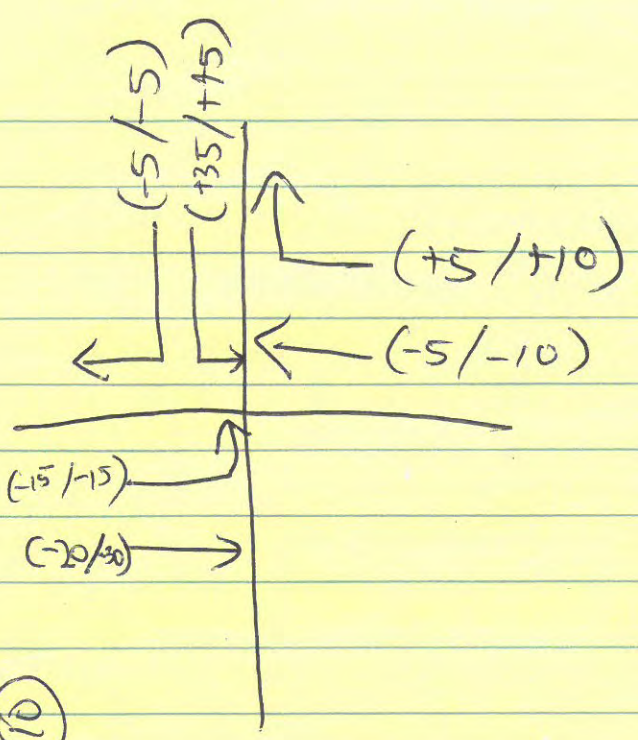 (-5/-5)
(+35/+45)
(+5/+10)
(-5/-10)
(-15/-15)
(-20/-30)
10